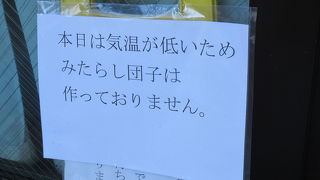 本日は気温が低いため
みたらし団子は
作っておりません。